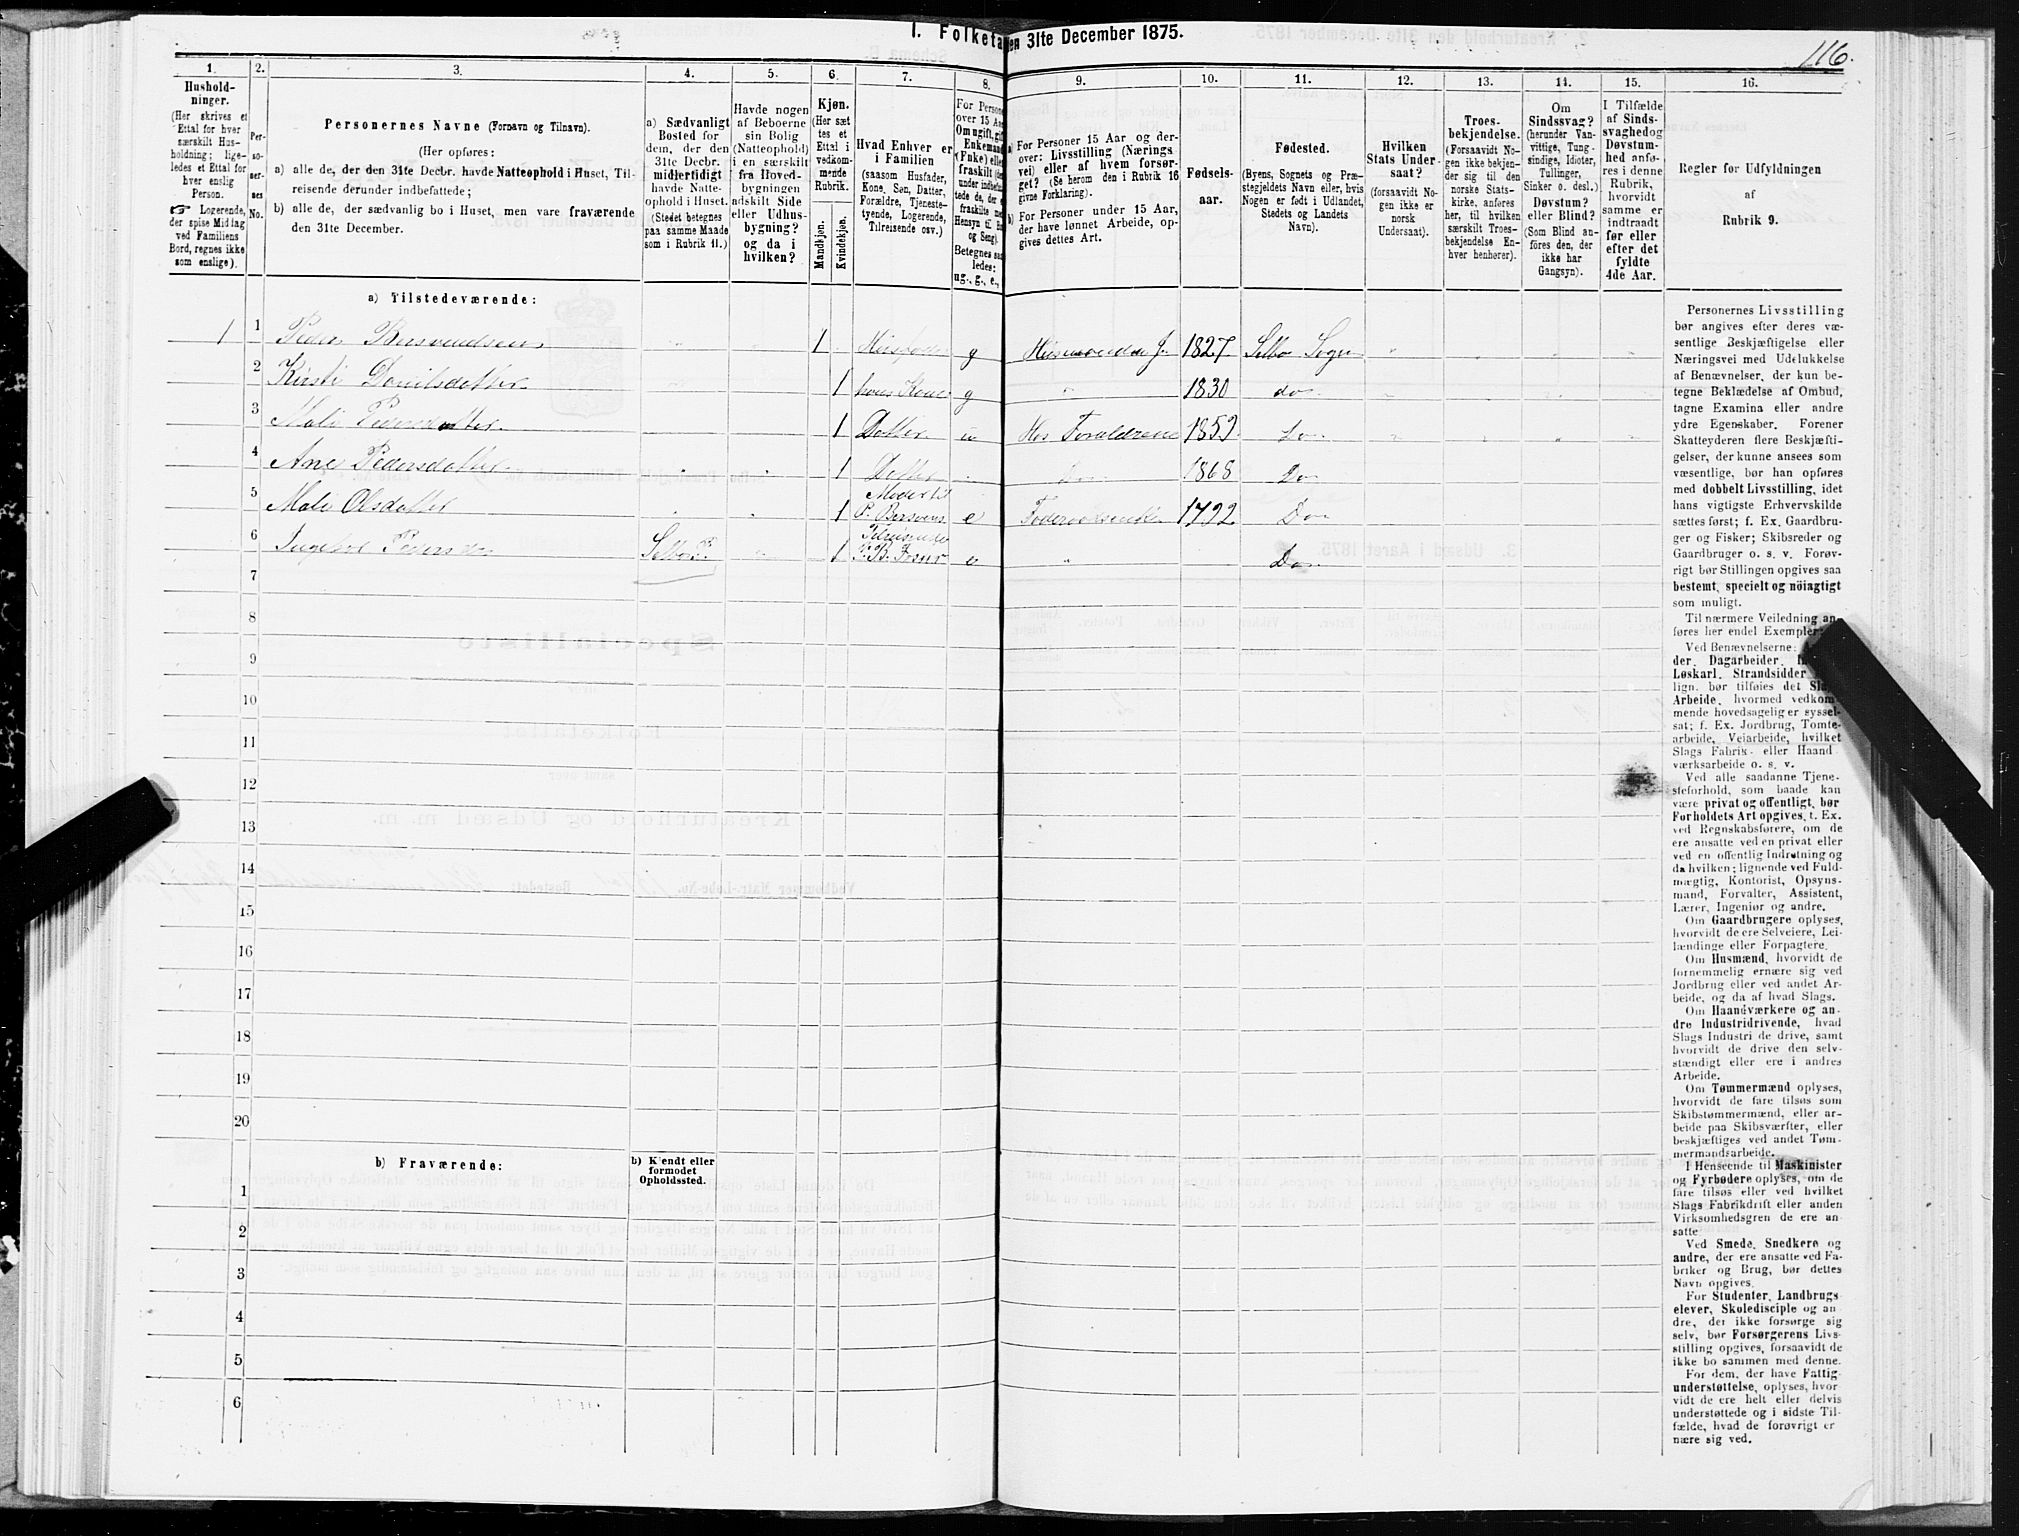 I. Folketa
en 31te December 1875.
116.
1. 2. 3. 4. 5. 6. 7. 8. 9. 10. 11. 12. 13. 14. 15. 16.
Hushold-
ninger.
(Her skrives et
Ettal for hver
særskilt Hus-
holdning; lige-
ledes et Ettal for
hver enslig
Person.
Logerende,
der spise Middag
ved Familiens
Bord, regnes ikke
som enslige).
Per-
so-
ner-
nes
No.
Personernes Navne (Fornavn og Tilnavn).
(Her opføres:
a) alle de, der den 31te Decbr. havde Natteophold i Huset, Til-
reisende derunder indbefattede;
b) alle de, der sædvanlig bo i Huset, men vare fraværende
den 31te December.
a) Sædvanligt
Bosted for
dem, der den
31te Decbr.
midlertidigt
havde Natte-
ophold i Huset.
(Stedet betegnes
paa samme Maade
som i Rubrik 11.)
Havde nogen
af Beboerne
sin Bolig
(Natteophold)
i en særskilt
fra Hoved-
bygningen
adskilt Side
eller Udhus-
bygning?
og da i
hvilken?
Kjøn.
(Her sæt
tes et
Ettal i
vedkom-
mende
Rubrik.
Mandkjøn.
Kvindekjøn.
Hvad Enhver er
i Familien
(saasom Husfader,
Kone, Søn, Datter,
Forældre, Tjeneste-
tyende, Logerende,
Tilreisende osv.)
For Persone
over 15 Aar
Om ugift, gift
Enkemand
(Enke) eller
fraskilt
Betegnes saa
ledes:
ug., g., e.,
a) For Personer 15 Aar og der-
over: Livsstilling (Nærings
vei) eller af hvem forsør-
get? (Se herom den i Rubrik 16
givne Forklaring).
b) For Personer under 15 Aar,
der have lønnet Arbeide, op-
gives dettes Art.
Fødsels-
aar.
Fødested.
(Byens, Sognets og Præ-
stegjeldets Navn eller, hvis
Nogen er født i Udlandet,
Stedets og Landets
Navn).
Hvilken
Stats Under-
saat?
(forsaavidt No-
gen ikke er
norsk
Undersaat).
Troes-
bekjendelse.
(Forsaavidt No-
gen ikke bekjen-
der sig til den
norske Stats-
kirke, anføres
her, til hvilken
særskilt Troes-
bekjendelse En-
hver henhører).
Om
Sindssvag?
(herunder Van-
vittige, Tung-
sindige, Idioter,
Tullinger,
Sinker o. desl.)
Døvstum?
eller Blind?
(Som Blind an-
føres den, der
ikke har
Gangsyn).
I Tilfælde
af Sinds-
svaghed og
Døvstum-
hed anfø-
res i denne
Rubrik,
hvorvidt
samme er
indtraadt
før eller
efter det
fyldte
4de Aar.
Regler for Udfyldningen
af
Rubrik 9.
a) Tilstedeværende:
1 1 Peder Bersvendsen 1 g 1827 Selbo Sogn
2 Kirsti Danilsdatter 1 hans Kone g 1830 do
3 Mali Pedersdatter 1 Datter Hos Forældrene 1859 Do
4 Ane Pedersdatter 1 Datter Do 1868 Do
5 Mali Olsdatter 1 Moder til P. Bersvens. e 1792 Do
6 Selbo P. 1 Do
7
8
9
10
11
12
13
14
15
16
17
18
19
20
b) Fraværende:
b) Kjendt eller
formodet
Opholdssted.
1
2
3
4
5
6
Personernes Livsstilling
bør angives efter deres væ-
sentlige Beskjæftigelse eller
Næringsvei med Udelukkelse
af Benævnelser, der kun be-
tegne Beklædelse af Ombud,
tagne Examina eller andre
ydre Egenskaber. Forener
Skatteyderen flere Beskjæfti-
gelser, der kunne ansees som
væsentlige, bør han opføres
med dobbelt Livsstilling, idet
hans vigtigste Erhvervskilde
sættes først; f. Ex. Gaardbru-
ger og Fisker; Skibsreder og
Gaardbruger o. s. v. Forøv-
rigt bør Stillingen opgives saa
bestemt, specielt og nöiagtigt
som muligt.
Til nærmere Veiledning an-
føres her endel Exempler:
Ved Benævnelserne:
der, Dagarbeider,
Løskarl, Strandsidder
lign. bør tilføies det Slags
Arbeide, hvormed vedkom-
mende hovedsagelig er syssel-
sat; f. Ex. Jordbrug, Tomte-
arbeide, Veiarbeide, hvilket
Slags Fabrik- eller Haand-
værksarbeide o. s. v.
Ved alle saadanne Tjene-
steforhold, som baade kan
være privat og offentligt, bør
Forholdets Art opgives, t. Ex.
ved Regnskabsførere, om de
ere ansatte ved en privat eller
ved en offentlig Indretning og
da hvilken; lignende ved Fuld-
mægtig, Kontorist, Opsyns-
mand, Forvalter, Assistent,
Lærer, Ingeniør og andre.
Om Gaardbrugere oplyses,
hvorvidt de ere Selveiere, Lei-
lændinge eller Forpagtere.
Om Husmænd, hvorvidt de
fornemmelig ernære sig ved
Jordbrug eller ved andet Ar-
beide, og da af hvad Slags.
Om Haandværkere og an-
dre Industridrivende, hvad
Slags Industri de drive, samt
hvorvidt de drive den selv-
stændigt eller ere i andres
Arbeide.
Om Tømmermænd oplyses,
hvorvidt de fare tilsøs som
Skibstømmermænd, eller ar-
beide paa Skibsværfter, eller
beskjæftiges ved andet Tøm-
mermandsarbeide.
I Henseende til Maskinister
og Fyrbødere oplyses, om de
fare tilsøs eller ved hvilket
Slags Fabrikdrift eller anden
Virksomhedsgren de ere an-
satte
Ved Smede, Snedkere og
andre, der ere ansatte ved Fa-
briker og Brug, bør dettes
Navn opgives.
For Studenter, Landbrugs-
elever, Skoledisciple og an-
dre, der ikke forsørge sig
selv, bør Forsørgerens Livs-
stilling opgives, forsaavidt de
ikke bo sammen med denne.
For dem, der have Fattig-
understøttelse, oplyses, hvor-
vidt de ere helt eller delvis
understøttede og i sidste Til-
fælde, hvad de forøvrigt er
nære sig ved.